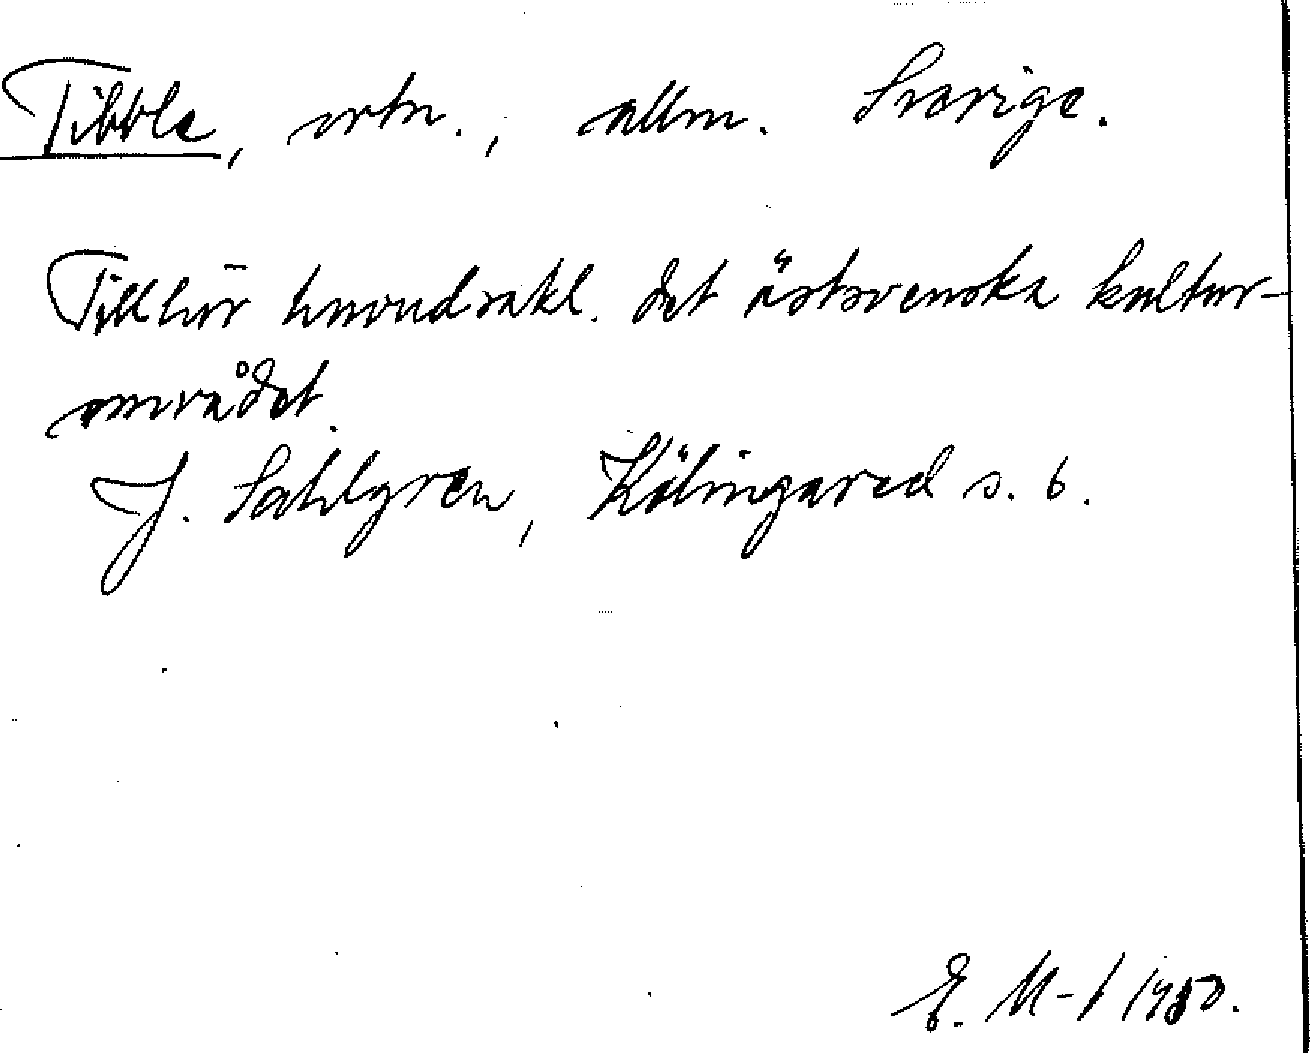 Tibble, ortn., allm. Sverige.
Tillhör huvudsakl. det östsvenska kultur-
området.
J. Sahlgren, Kölingared s. 6.
E. M-t 1950.